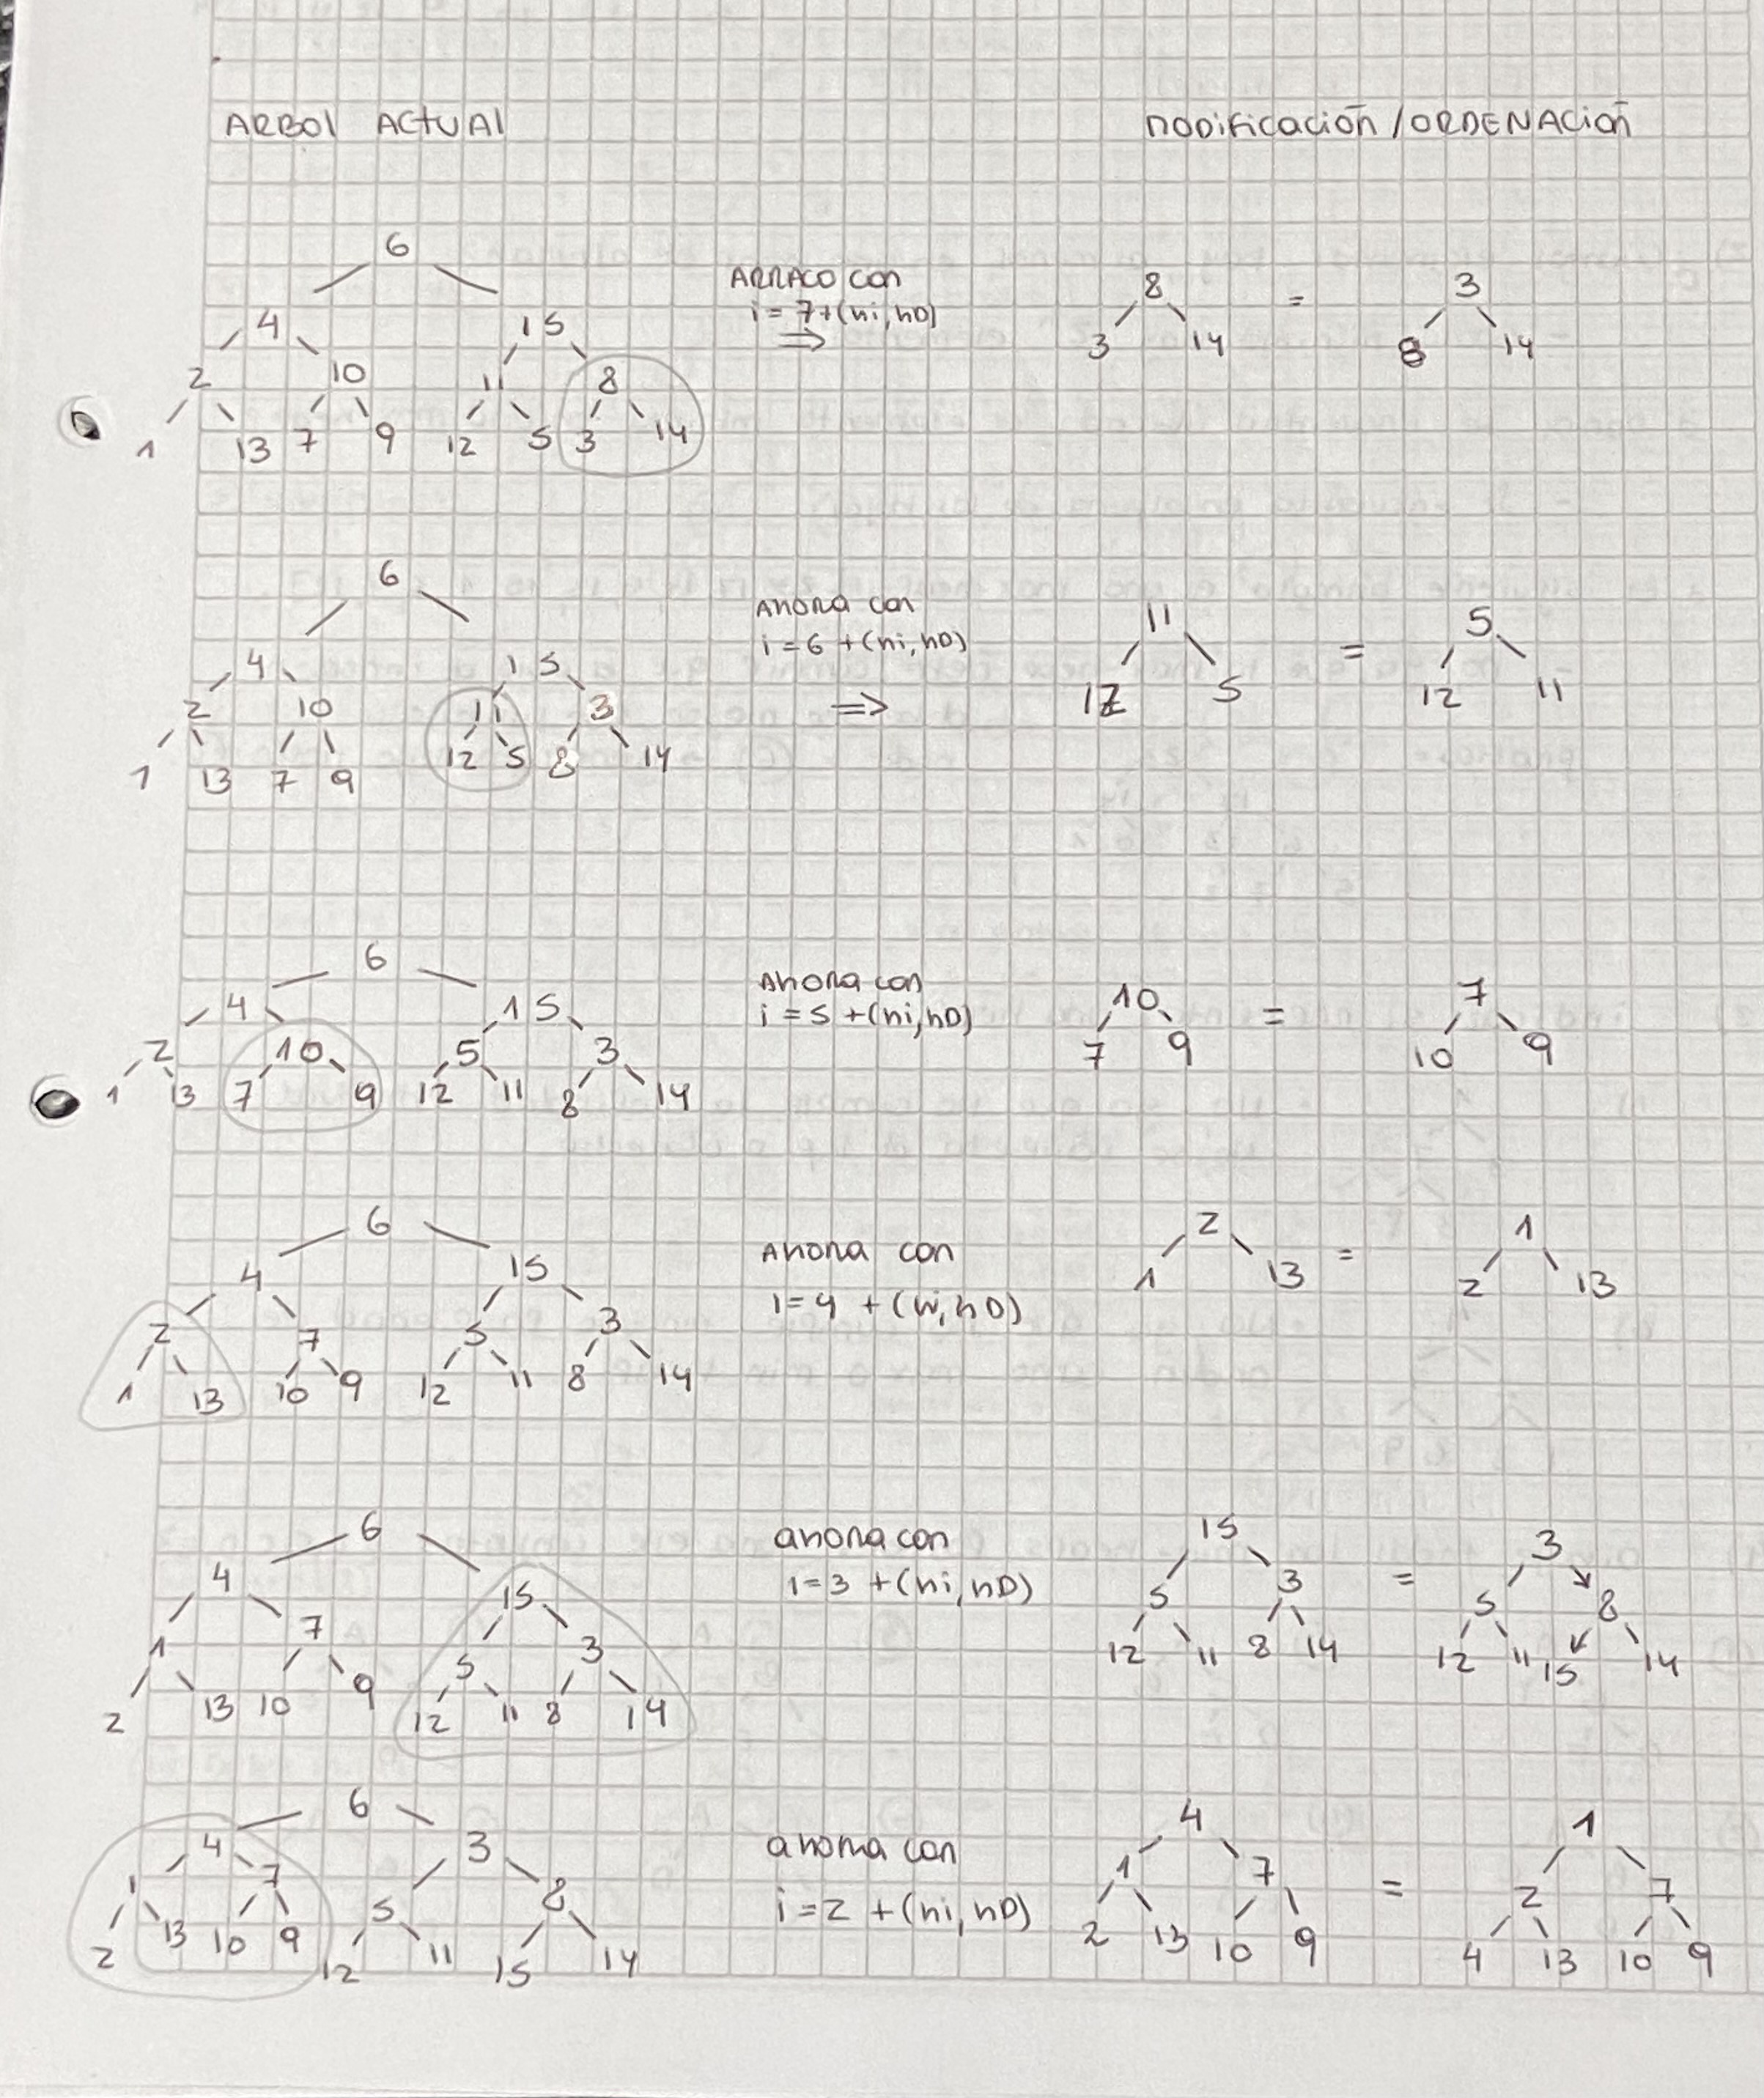 ARBOl ACtUAl
MODIFICACIÓN / ORDENACIÓN
6
4 15
2 10 11 8
1 13 7 9 12 5 3 14
ARRACO con
i = 7 + (hi, hD)
⇒
8 = 3
3 14 8 14
6
4 15
2 10 11 3
1 13 7 9 12 5 8 14
Ahora con
i = 6 + (hi, hD)
⇒
11 = 5
12 5 12 11
6
4 15
2 10 5 3
1 13 7 9 12 11 8 14
Ahora con
i = 5 + (hi, hD)
10 = 7
7 9 10 9
6
4 15
2 7 5 3
1 13 10 9 12 11 8 14
Ahora con
i = 4 + (hi, hD)
2 = 1
1 13 2 13
6
4 15
1 7 5 3
2 13 10 9 12 11 8 14
ahora con
i = 3 + (hi, hD)
15 = 3
5 3 5 8
12 11 8 14 12 11 15 14
6
4 3
1 7 5 8
2 13 10 9 12 11 15 14
ahora con
i = 2 + (hi, hD)
4 = 1
1 7 2 7
2 13 10 9 4 13 10 9